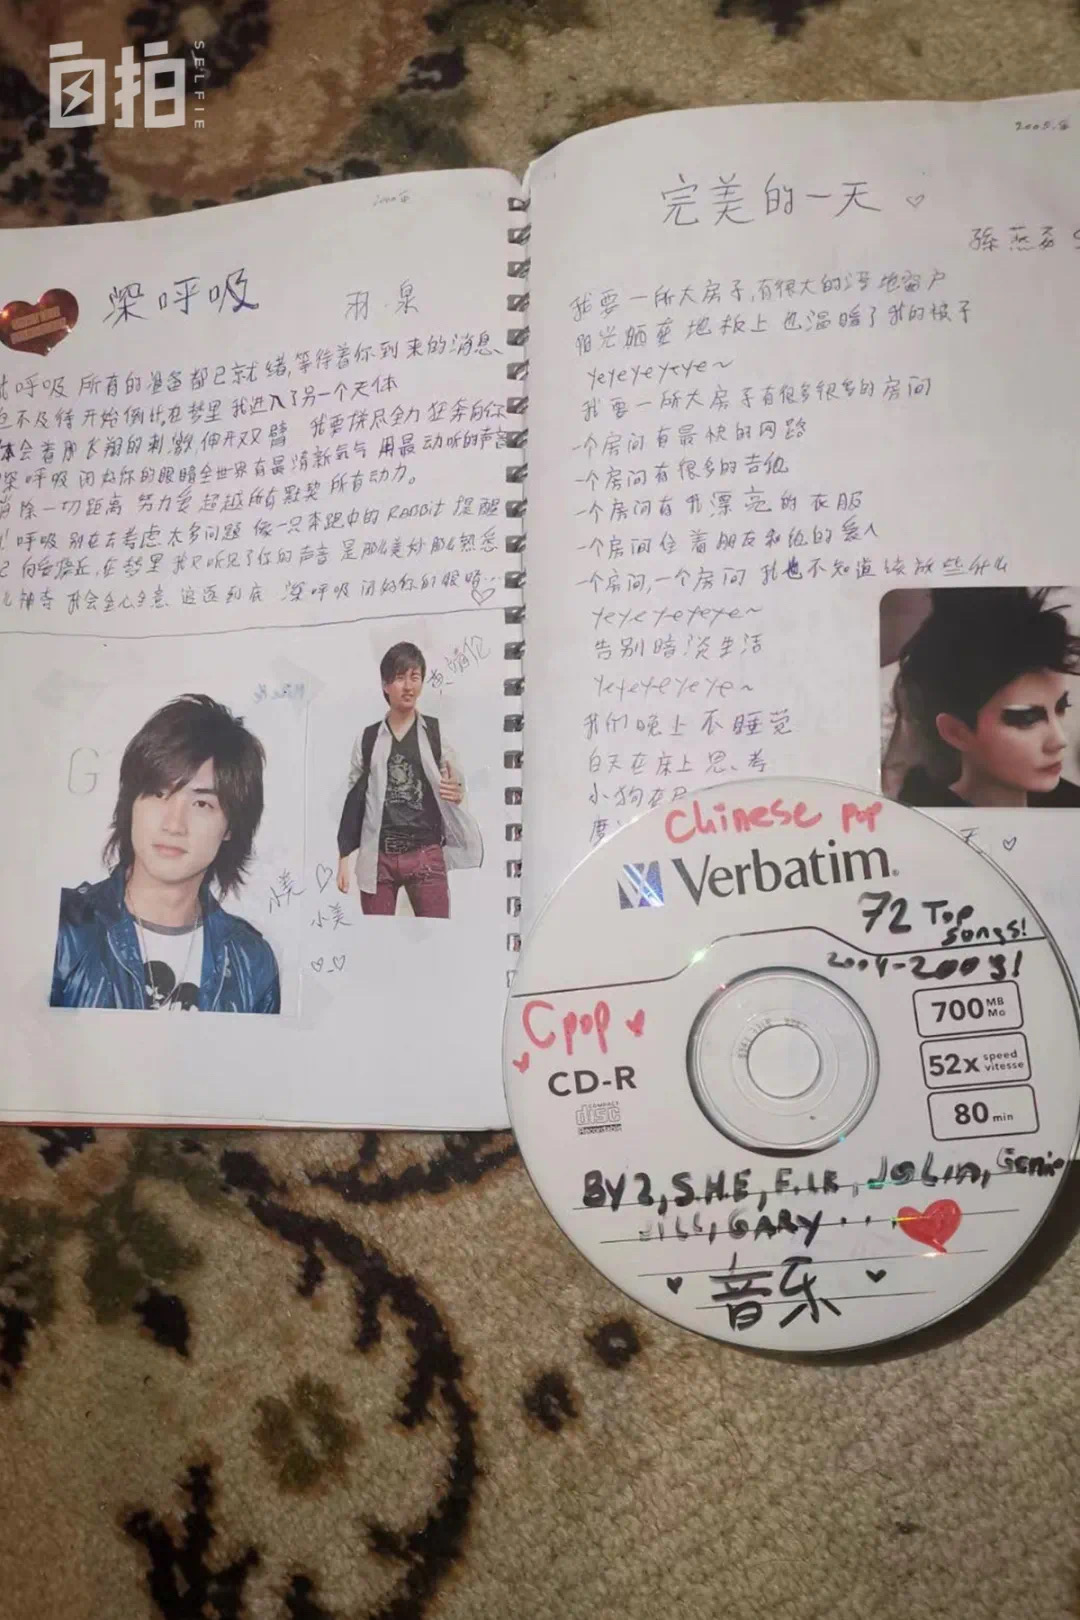 自拍
SELFIE
深呼吸
羽·泉
呼吸 所有的准备都已就绪,等待着你到来的消息、
不及待 开始倒计,在梦里 我进入了另一个天体
体会着那飞翔的刺激,伸开双臂 我要拼尽全力 狂奔向你
深呼吸 闭好你的眼睛全世界有最清新氧气 用最动听的声音
消除一切距离 努力爱 超越所有默契 所有动力。
呼吸 别在去考虑太多问题 像一只奔跑中的 RABBit 提醒
向爱靠近,在梦里 我只听见了你的声音 是那么美妙那么熟悉
我会全心全意 追逐到底 深呼吸 闭好你的眼睛…
小美
小美
2005.
完美的一天
孙燕姿
我要一所大房子,有很大的落地窗户
阳光洒在地板上 也温暖了我的被子
yeyeyeyeye~
我要一所大房子有很多很多的房间
一个房间有最快的网路
一个房间有很多的吉他
一个房间有我漂亮的衣服
一个房间住着朋友和他的爱人
一个房间,一个房间 我也不知道该放些什么
yeyeyeyeyeye~
告别暗淡生活
yeyeyeyeyeye~
我们晚上不睡觉
白天在床上思考
小狗在
天
Chinese pop
Verbatim
72 Top
songs!
2004-2009!
Cpop
CD-R
COMPACT
disc
Recordable
700 MB
Mo
52x speed
vitesse
80 min
BY2, S.H.E, F.I.R, JOLIN, Genie
JILL, GARY...
音乐